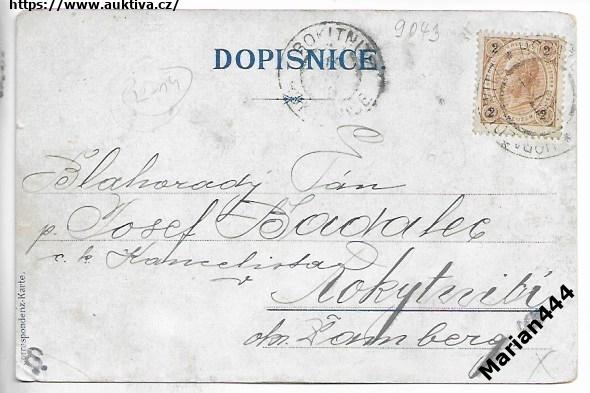 https://www.auktiva.cz/
9043
DOPISNICE.
ROKITNI
2 2
Blahorodý Pán
p. Josef Badalec
c. k. Kancelista
v Rokytnici
okr. Žamberg
Correspondenz-Karte.
Marian444